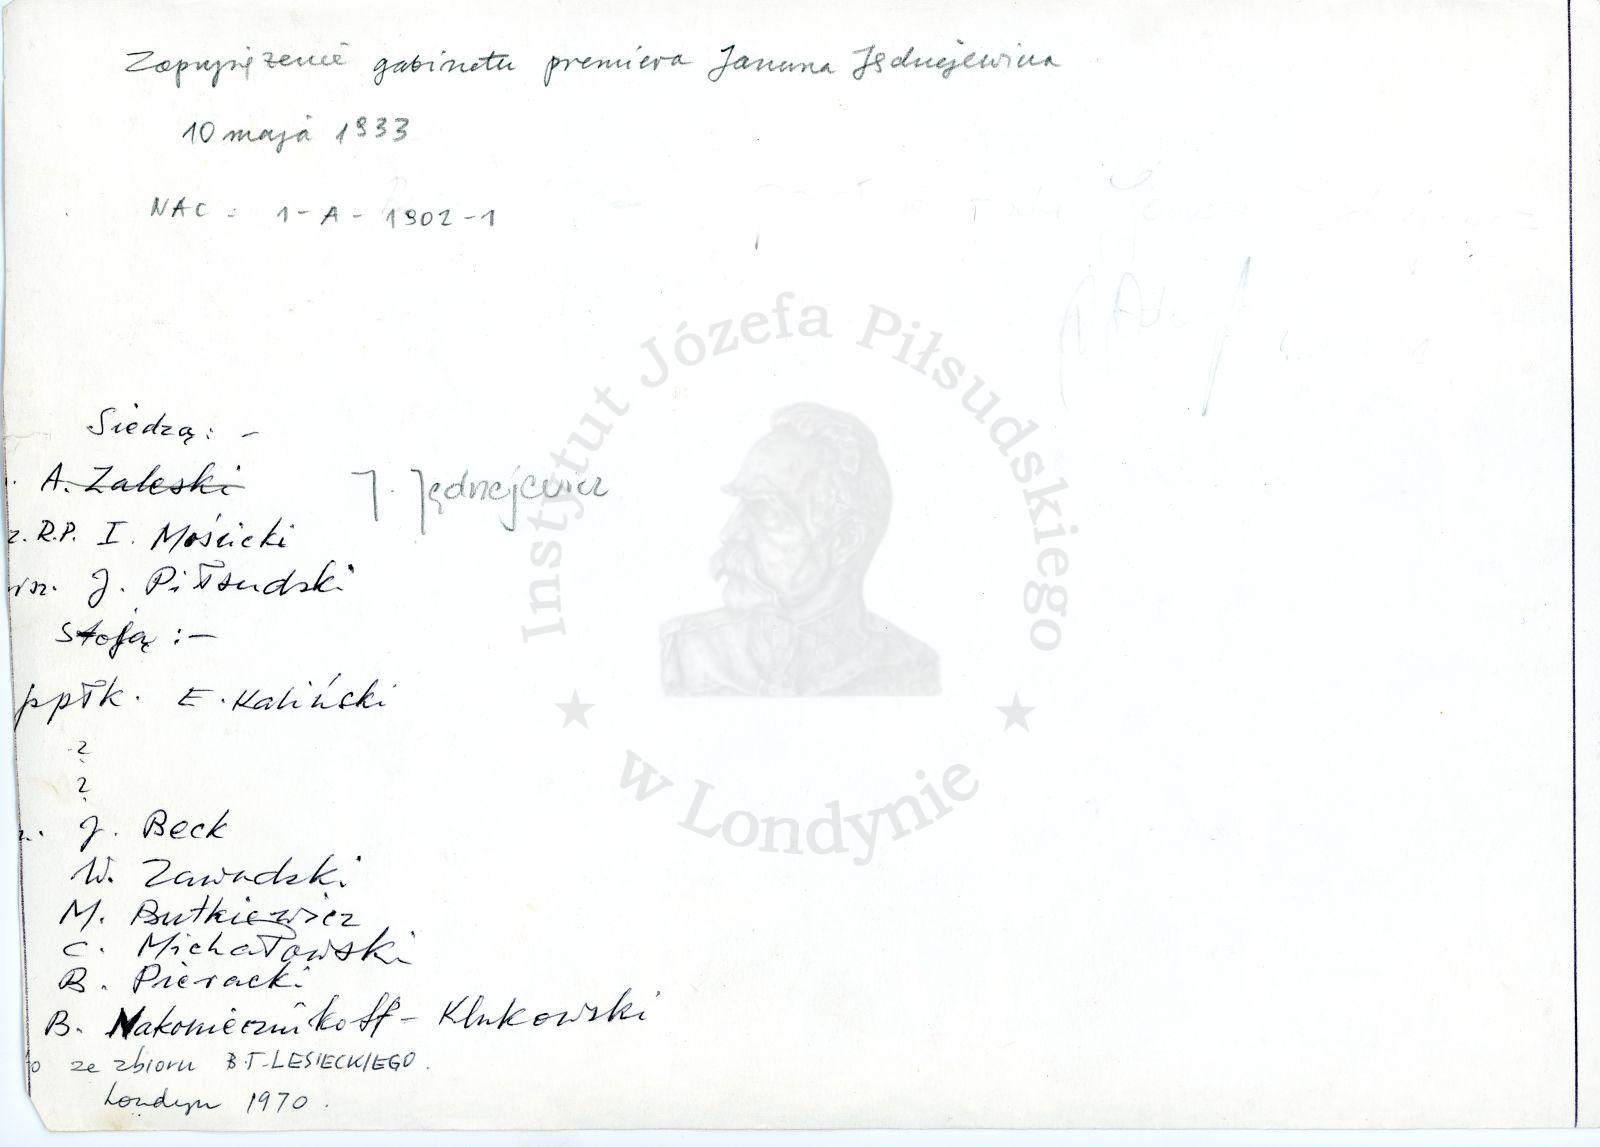 Zaprzysiężenie gabinetu premiera Janusza Jędrzejewicza
10 maja 1933
NAC : 1-A-1902-1
Instytut Józefa Piłsudskiego
w Londynie
Siedzą: -
A. Zaleski J. Jędrzejewicz
z. R.P. I. Mościcki
rsz. J. Piłsudski
Stoją :-
ppłk. E. Kaliński
?
?
J. Beck
W. Zawadzki
M. Butkiewicz
C. Michałowski
B. Pieracki
B. Nakoniecznikoff - Klukowski
o ze zbioru B.T. LESIECKIEGO.
Londyn 1970.